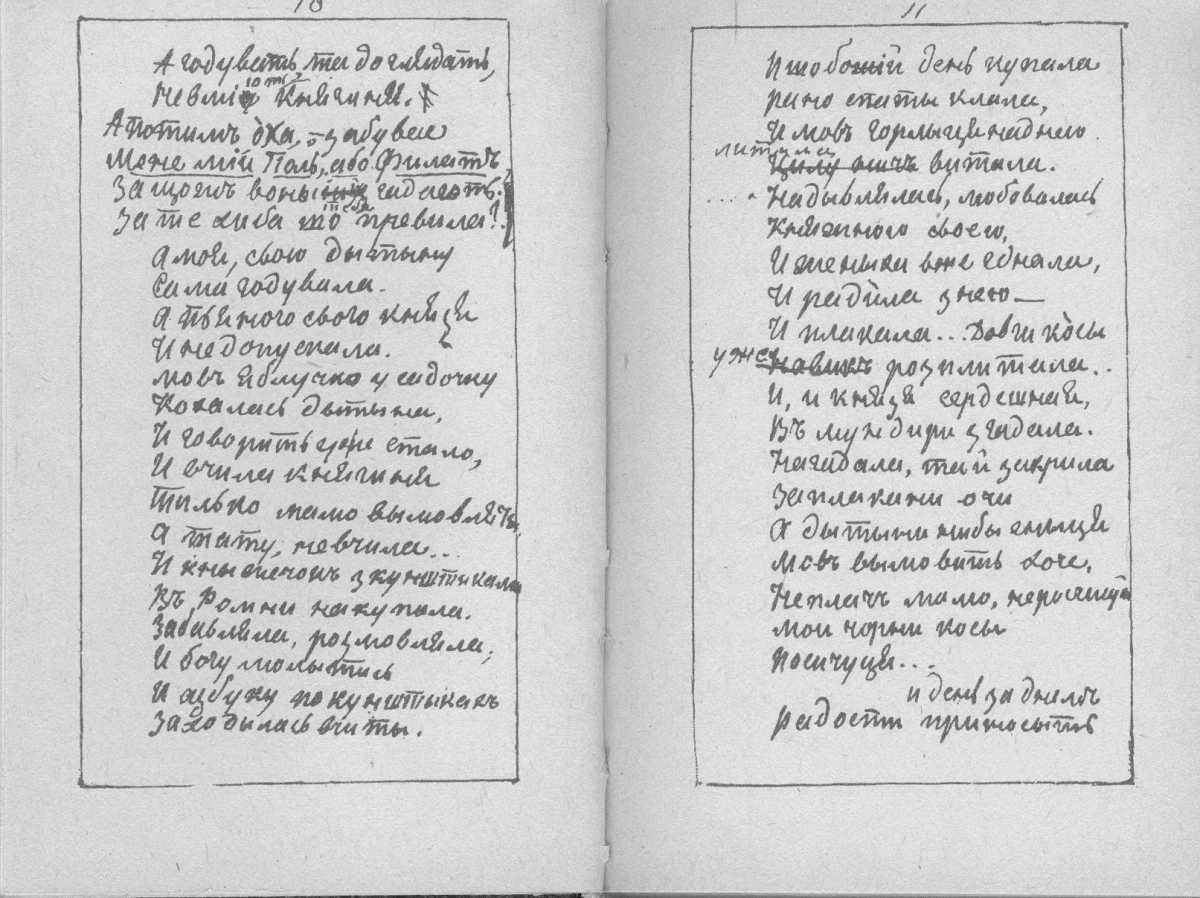 10
А годувать та доглядать,
Невміють княгині.
А потимъ оха, - забувае
Мене мій Поль, або Филатъ.
За щожъ воны гадають.
За те хиба що себе привила?
А моя, свою дытыну
Сама годувала.
А пьяного свого князя
И недопускала.
Мовъ яблучко у садочку
Кохалась дытына,
И говорить уже стало,
И вчила княгиня
Тилько мамо вымовлять,
А тату, невчила...
И кныжечокъ з кунштыками
Въ Ромни накупила.
Забавляла, розмовляла,
И богу молытись
И азбуку по кунштыкахъ
Заходылась вчиты.
11
И що божій день купала
рано спаты клала,
И мовъ горлыця надъ нею
литала
Цилу ничъ витала.
Надывлялась, любовалась
Княжною своею,
И женыха вже еднала,
И радила з нею —
И плакала... Довги косы
уже
Навикъ розплитала..
И, и князя сердешная,
Въ мундири згадала.
Нагадала, тай закрила
Заплакани очи
А дытына нибы знаця
Мовъ вымовить хоче,
Неплачъ мамо, нероспитуй
мои чорни косы
Посичуця...
и день за днемъ
радости приносыть